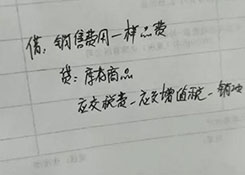 借：销售费用—样品费
贷：库存商品
应交税费—应交增值税—销项